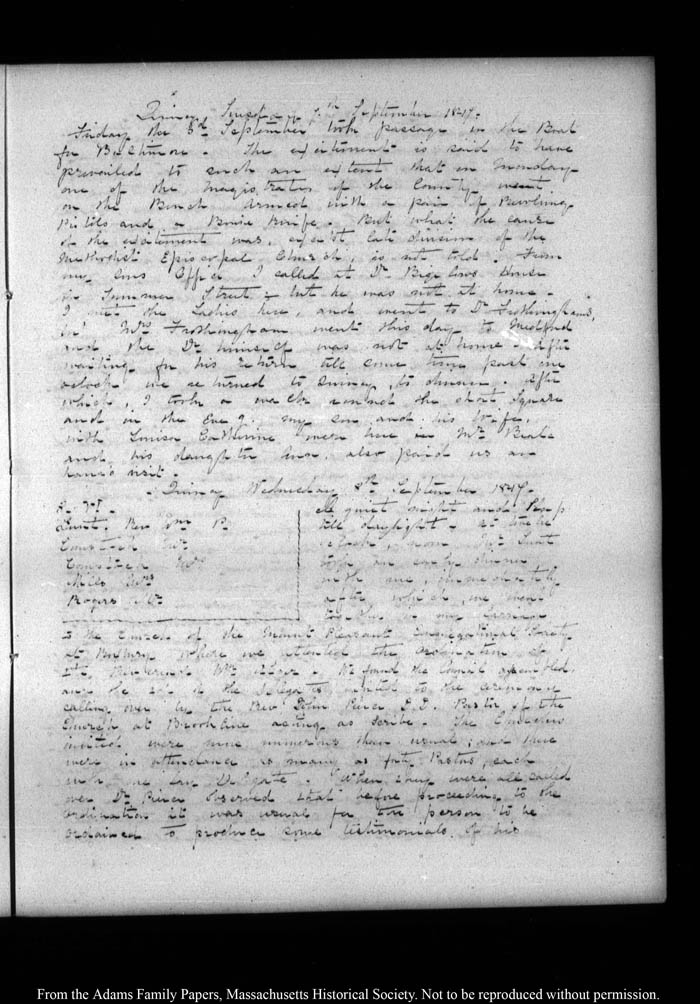 Quincy Tuesday 7th September 1847.
Friday the 3d September took passage in the Boat
for Baltimore. The excitement is said to have
prevailed to such an extent that on Monday
one of the Magistrates of the County went
on the Bench armed with a pair of Revolving
Pistols and a Bowie Knife. But what the cause
of the excitement was, except late division of the
Methodist Episcopal Church, is not told. From
my Sons Office I called at Dr Bigelows House
Summer Street; but he was not at home.
I met the Ladies here, and went to Dr Frothinghams,
Mrs Frothingham went this day to Medford
and the Dr himself was not at home. After
waiting for his return till some time past one
o'clock we returned to Quincy, to dinner. After
which, I took a walk round the short Square
and in the Eveg. my son and his Wife,
with Louisa Catherine were here Mr Beale
and his daughter Ann, also paid us an
hour's visit.
Quincy Wednesday 8th September 1847.
Lunt, Rev Wm P.
Comstock Mr
Comstock
Miles Mrs
Rogers
quiet night and Sleep
till daylight. At twelve
o'clock, noon Mr Lunt
took an early dinner
with me, immediately
after which, we went
together in my Carriage
to the Church of the Mount Pleasant Congregational Society
at Roxbury where we attended the ordination of
its Reverend We found the Council assembled.
the Delegates to the ceremony
calling over by the Rev John Pierce D.D. Pastor of the
Church at Brookline acting as Scribe. The Churches
invited were more numerous than usual; and there
were in attendance as many as forty Pastors, each
with one lay Delegate. When they were all called
over Dr Pierce observed that before proceeding to the
ordination it was usual for the person to be
ordained to produce some testimonials of his
From the Adams Family Papers, Massachusetts Historical Society. Not to be reproduced without permission.